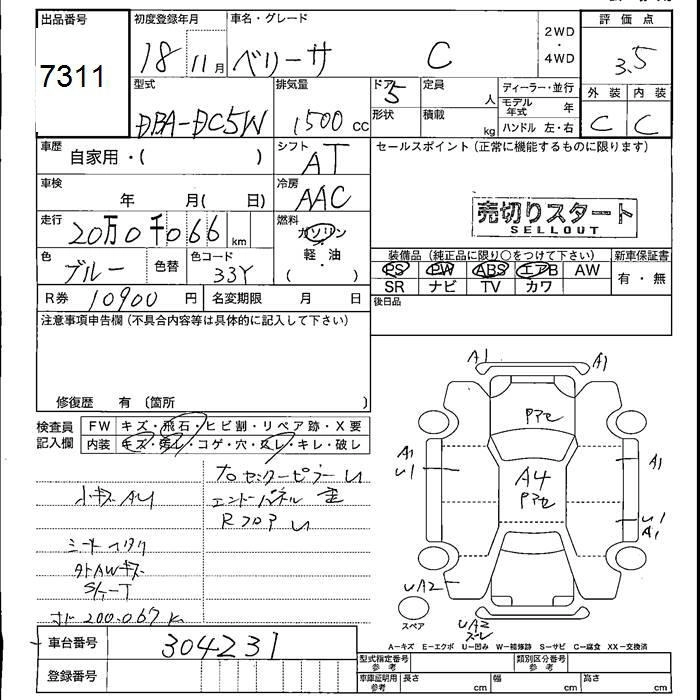 出品番号
7311
初度登録年月
18 11月
車名・グレード
ベリーサ C
2WD
・
4WD
評価点
3.5
型式
DBA-DC5W
排気量
1500 cc
ドア
5
形状
定員
人
積載
kg
ディーラー・並行
モデル年式 年
ハンドル 左・右
外装 内装
C C
車歴
自家用・( )
シフト
AT
セールスポイント(正常に機能するものに限ります)
車検
年 月( 日)
冷房
AAC
売切りスタート
SELLOUT
走行
20万0千066 km
燃料
ガソリン
軽・油
( )
色
ブルー
色替
色コード
33Y
装備品(純正品に限り○をつけて下さい)
新車保証書
PS PW ABS エアB AW
有・無
SR ナビ TV カワ
R券 10900 円
名変期限 月 日
後日品
注意事項申告欄(不具合内容等は具体的に記入して下さい)
修復歴 有 〔箇所 〕
検査員
記入欄
FW キズ・飛石・ヒビ割・リペア跡・X要
内装 キズ・汚れ・コゲ・穴・スレ・キレ・破レ
フロセンターピラーU
小キズAU
エンドパネル歪
RフロアU
シートヨゴレ
外AWキズ
S/T
200,067K
車台番号
304231
登録番号
A1 A1
Pアセ
A1
U1
A4
Pアセ
A1
U1
A1
UA2
UA2
スレ
スペア
A−キズ E−エクボ U−凹み W−補修跡 S−サビ C−腐食 XX−交換済
型式指定番号
参考
類別区分番号
参考
車庫証明用
参考
長さ cm
幅 cm
高さ cm